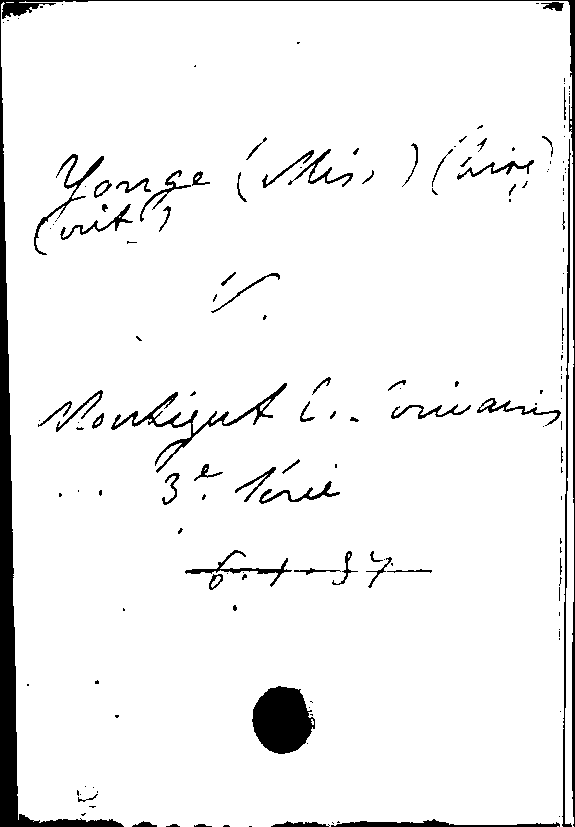 Yonge (Miss) (biog
crit.)
V.
Montégut E. - Écrivains
... 3e. Série
6.1.37